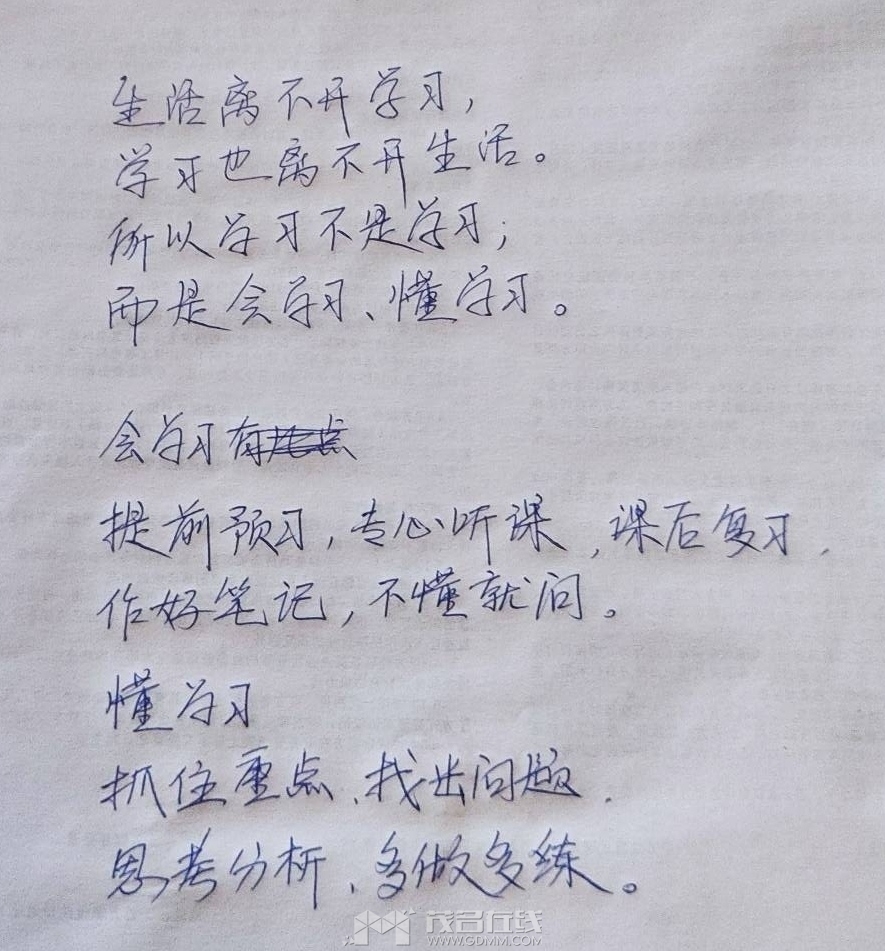 生活离不开学习，
学习也离不开生活。
所以学习不是学习；
而是会学习、懂学习。
会学习
提前预习，专心听课，课后复习，
作好笔记，不懂就问。
懂学习
抓住重点、找出问题、
思考分析、多做多练。
茂名在线
WWW.GDMM.COM